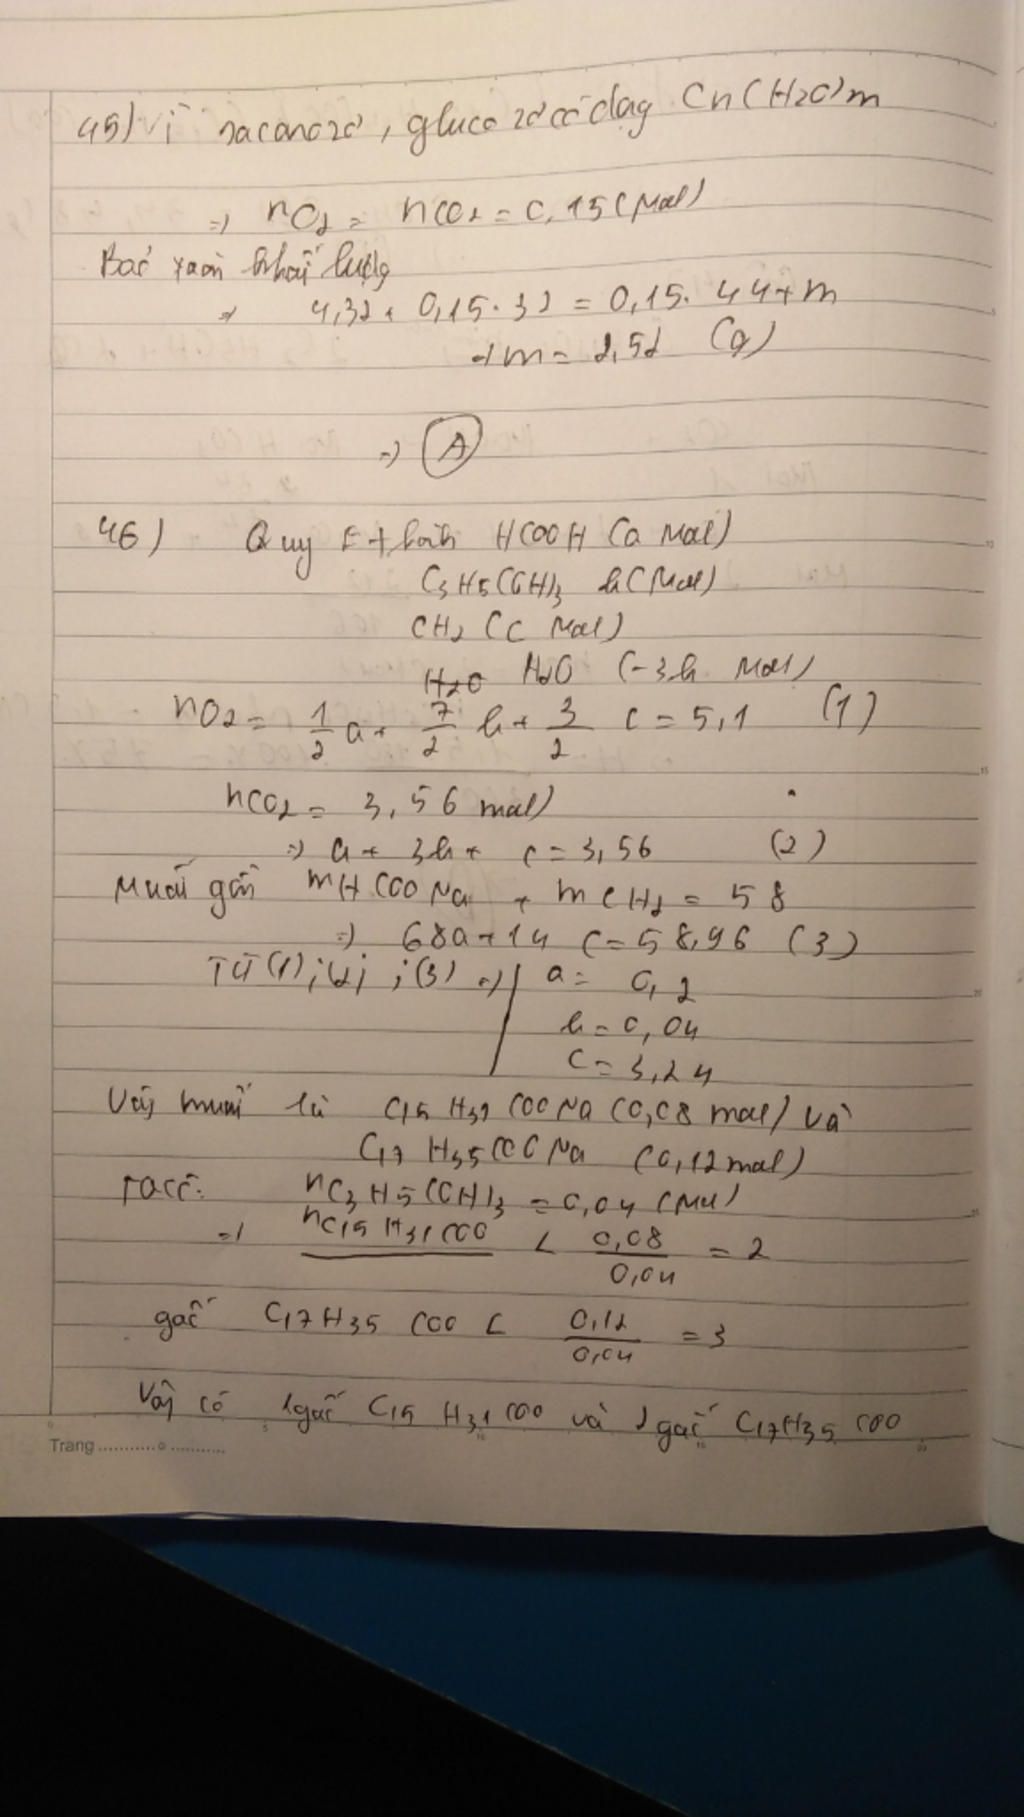 45) Vì saccarozơ, glucozơ có dạng Cn(H2O)m
=> nO2 = nCO2 = 0,15 (mol)
Bảo toàn khối lượng
=> 4,32 + 0,15.32 = 0,15.44 + m
=> m = 2,52 (g)
=> A
46) Quy E thành HCOOH (a mol)
C3H5(OH)3 b (mol)
CH2 (c mol)
H2O (-3b mol)
nO2 = 1/2 a + 7/2 b + 3/2 c = 5,1 (1)
nCO2 = 3,56 mol)
=> a + 3b + c = 3,56 (2)
Muối gồm mHCOONa + mCH2 = 58
=> 68a + 14c = 58,96 (3)
Từ (1); (2); (3) => a = 0,2
b = 0,04
c = 3,24
Vậy muối là C15H31COONa (0,08 mol) và
C17H35COONa (0,12 mol)
Ta có: nC3H5(OH)3 = 0,04 (mol)
=> nC15H31COO < 0,08/0,04 = 2
gốc C17H35COO < 0,12/0,04 = 3
Vậy có 1 gốc C15H31COO và 2 gốc C17H35COO
Trang